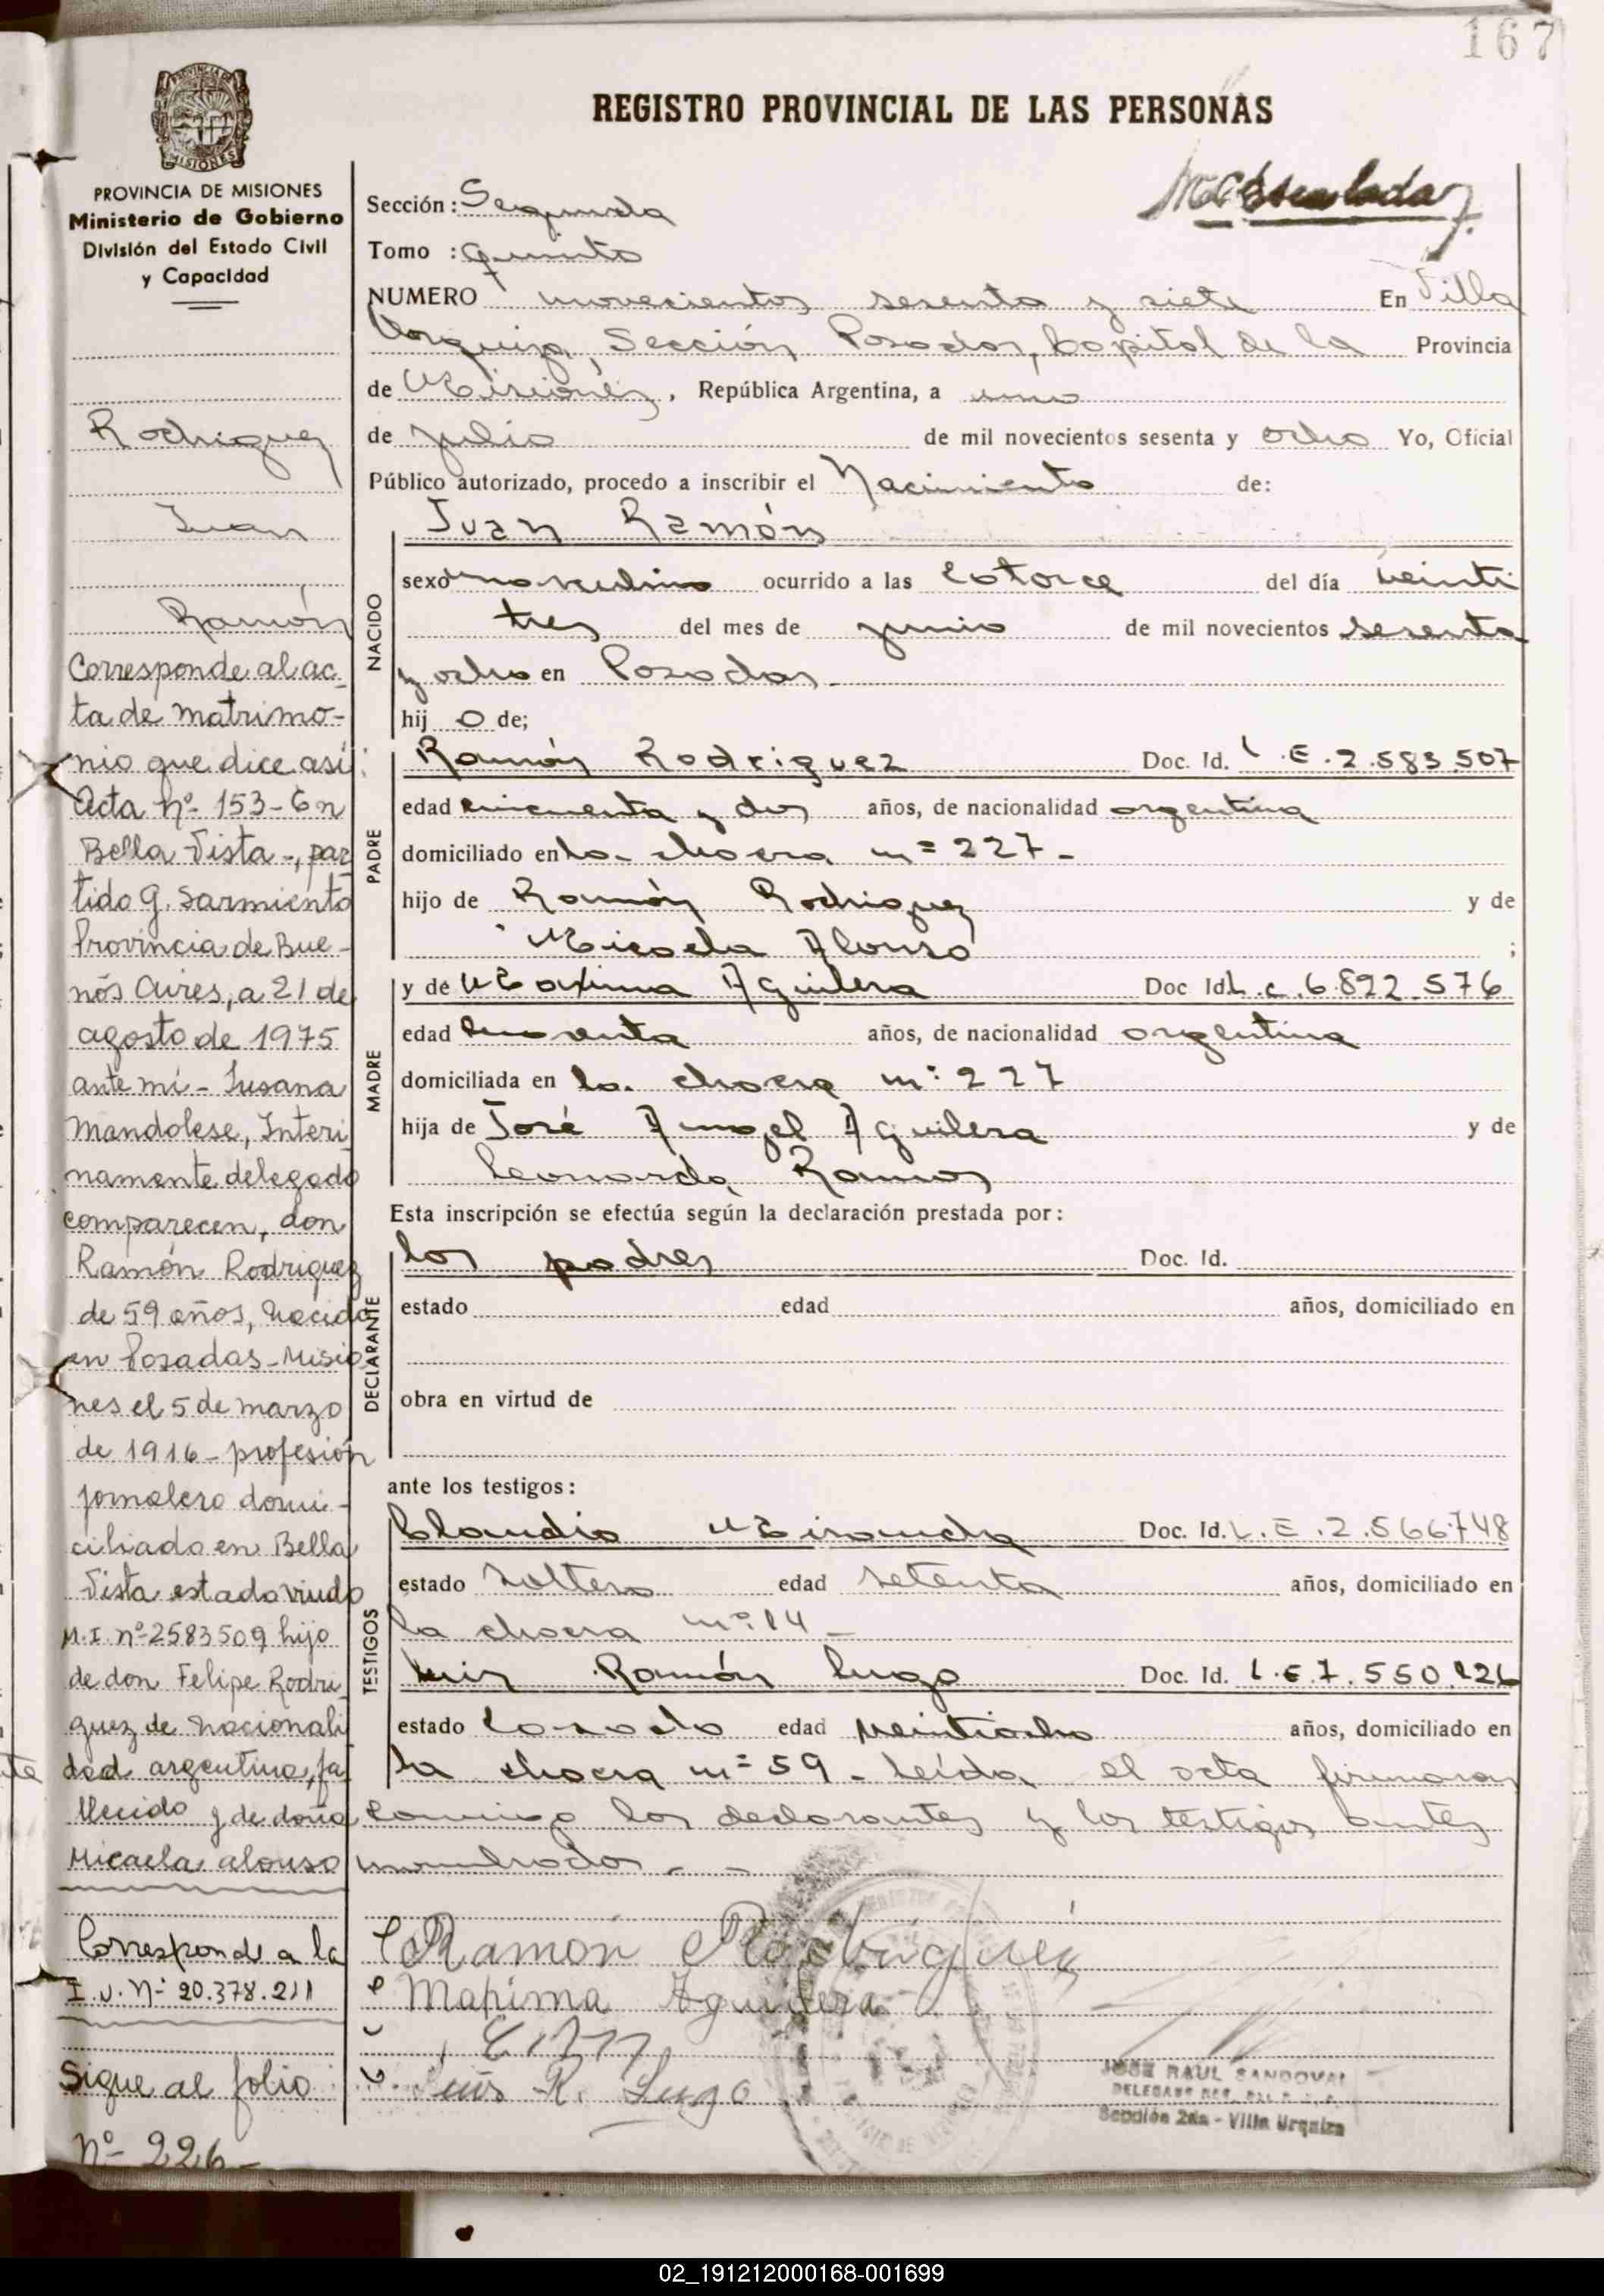 167
REGISTRO PROVINCIAL DE LAS PERSONAS
MISIONES
PROVINCIA DE MISIONES
Ministerio de Gobierno
División del Estado Civil
y Capacidad
Rodriguez
Juan
Ramón
Corresponde al ac-
ta de matrimo-
nio que dice asi:
Acta nº 153 - En
Bella Vista -, par
tido G. Sarmiento
Provincia de Bue-
nos Aires, a 21 de
agosto de 1975
ante mi - Susana
Mandolese, Interi
namente delegado
comparecen, don
Ramón Rodriguez
de 59 años, nacido
en Posadas - Misio
nes el 5 de marzo
de 1916 - profesión
jornalero domi-
ciliado en Bella
Vista estado viudo
M.I. nº 2583509 hijo
de don Felipe Rodri
guez de nacionali
dad argentina, fa
llecido y de doña
Micaela alonso
Corresponde a la
I.N. Nº 20.378.211
Sigue al folio
Nº 226-
Sección: Segunda
Tomo : quinto
NUMERO novecientos sesenta y siete En Villa
Urquiza, Sección Posadas, Capital de la Provincia
de Misiones, República Argentina, a uno
de julio de mil novecientos sesenta y ocho Yo, Oficial
Público autorizado, procedo a inscribir el Nacimiento de:
NACIDO
Juan Ramón
sexo masculino ocurrido a las catorce del día veinti
tres del mes de junio de mil novecientos sesenta
y ocho en Posadas
hij o de;
PADRE
Ramón Rodriguez Doc. Id. L.E.2.583.507
edad cincuenta y dos años, de nacionalidad argentina
domiciliado en la chacra nº 227-
hijo de Ramón Rodriguez y de
Micaela Alonso ;
MADRE
y de Maxima Aguilera Doc Id L.c.6.822.576
edad años, de nacionalidad argentina
domiciliada en la chacra nº 227
hija de José Angel Aguilera y de
Leonarda Ramos
Esta inscripción se efectúa según la declaración prestada por:
DECLARANTE
los padres Doc. Id.
estado edad años, domiciliado en
obra en virtud de
ante los testigos:
TESTIGOS
Claudio Miranda Doc. Id. L.E.2.566.748
estado soltero edad setenta años, domiciliado en
la chacra nº 14 -
Luis Ramón Lugo Doc. Id. L.E.7.550.226
estado casado edad veintiocho años, domiciliado en
la chacra nº 59 - leída el acta firmaron
conmigo los declarantes y los testigos antes
nombrados - -
Ramon Rodriguez
Mapima Aguilera
Luis R. Lugo
JOSE RAUL SANDOVAL
Sección 2da - Villa Urquiza
02_191212000168-001699